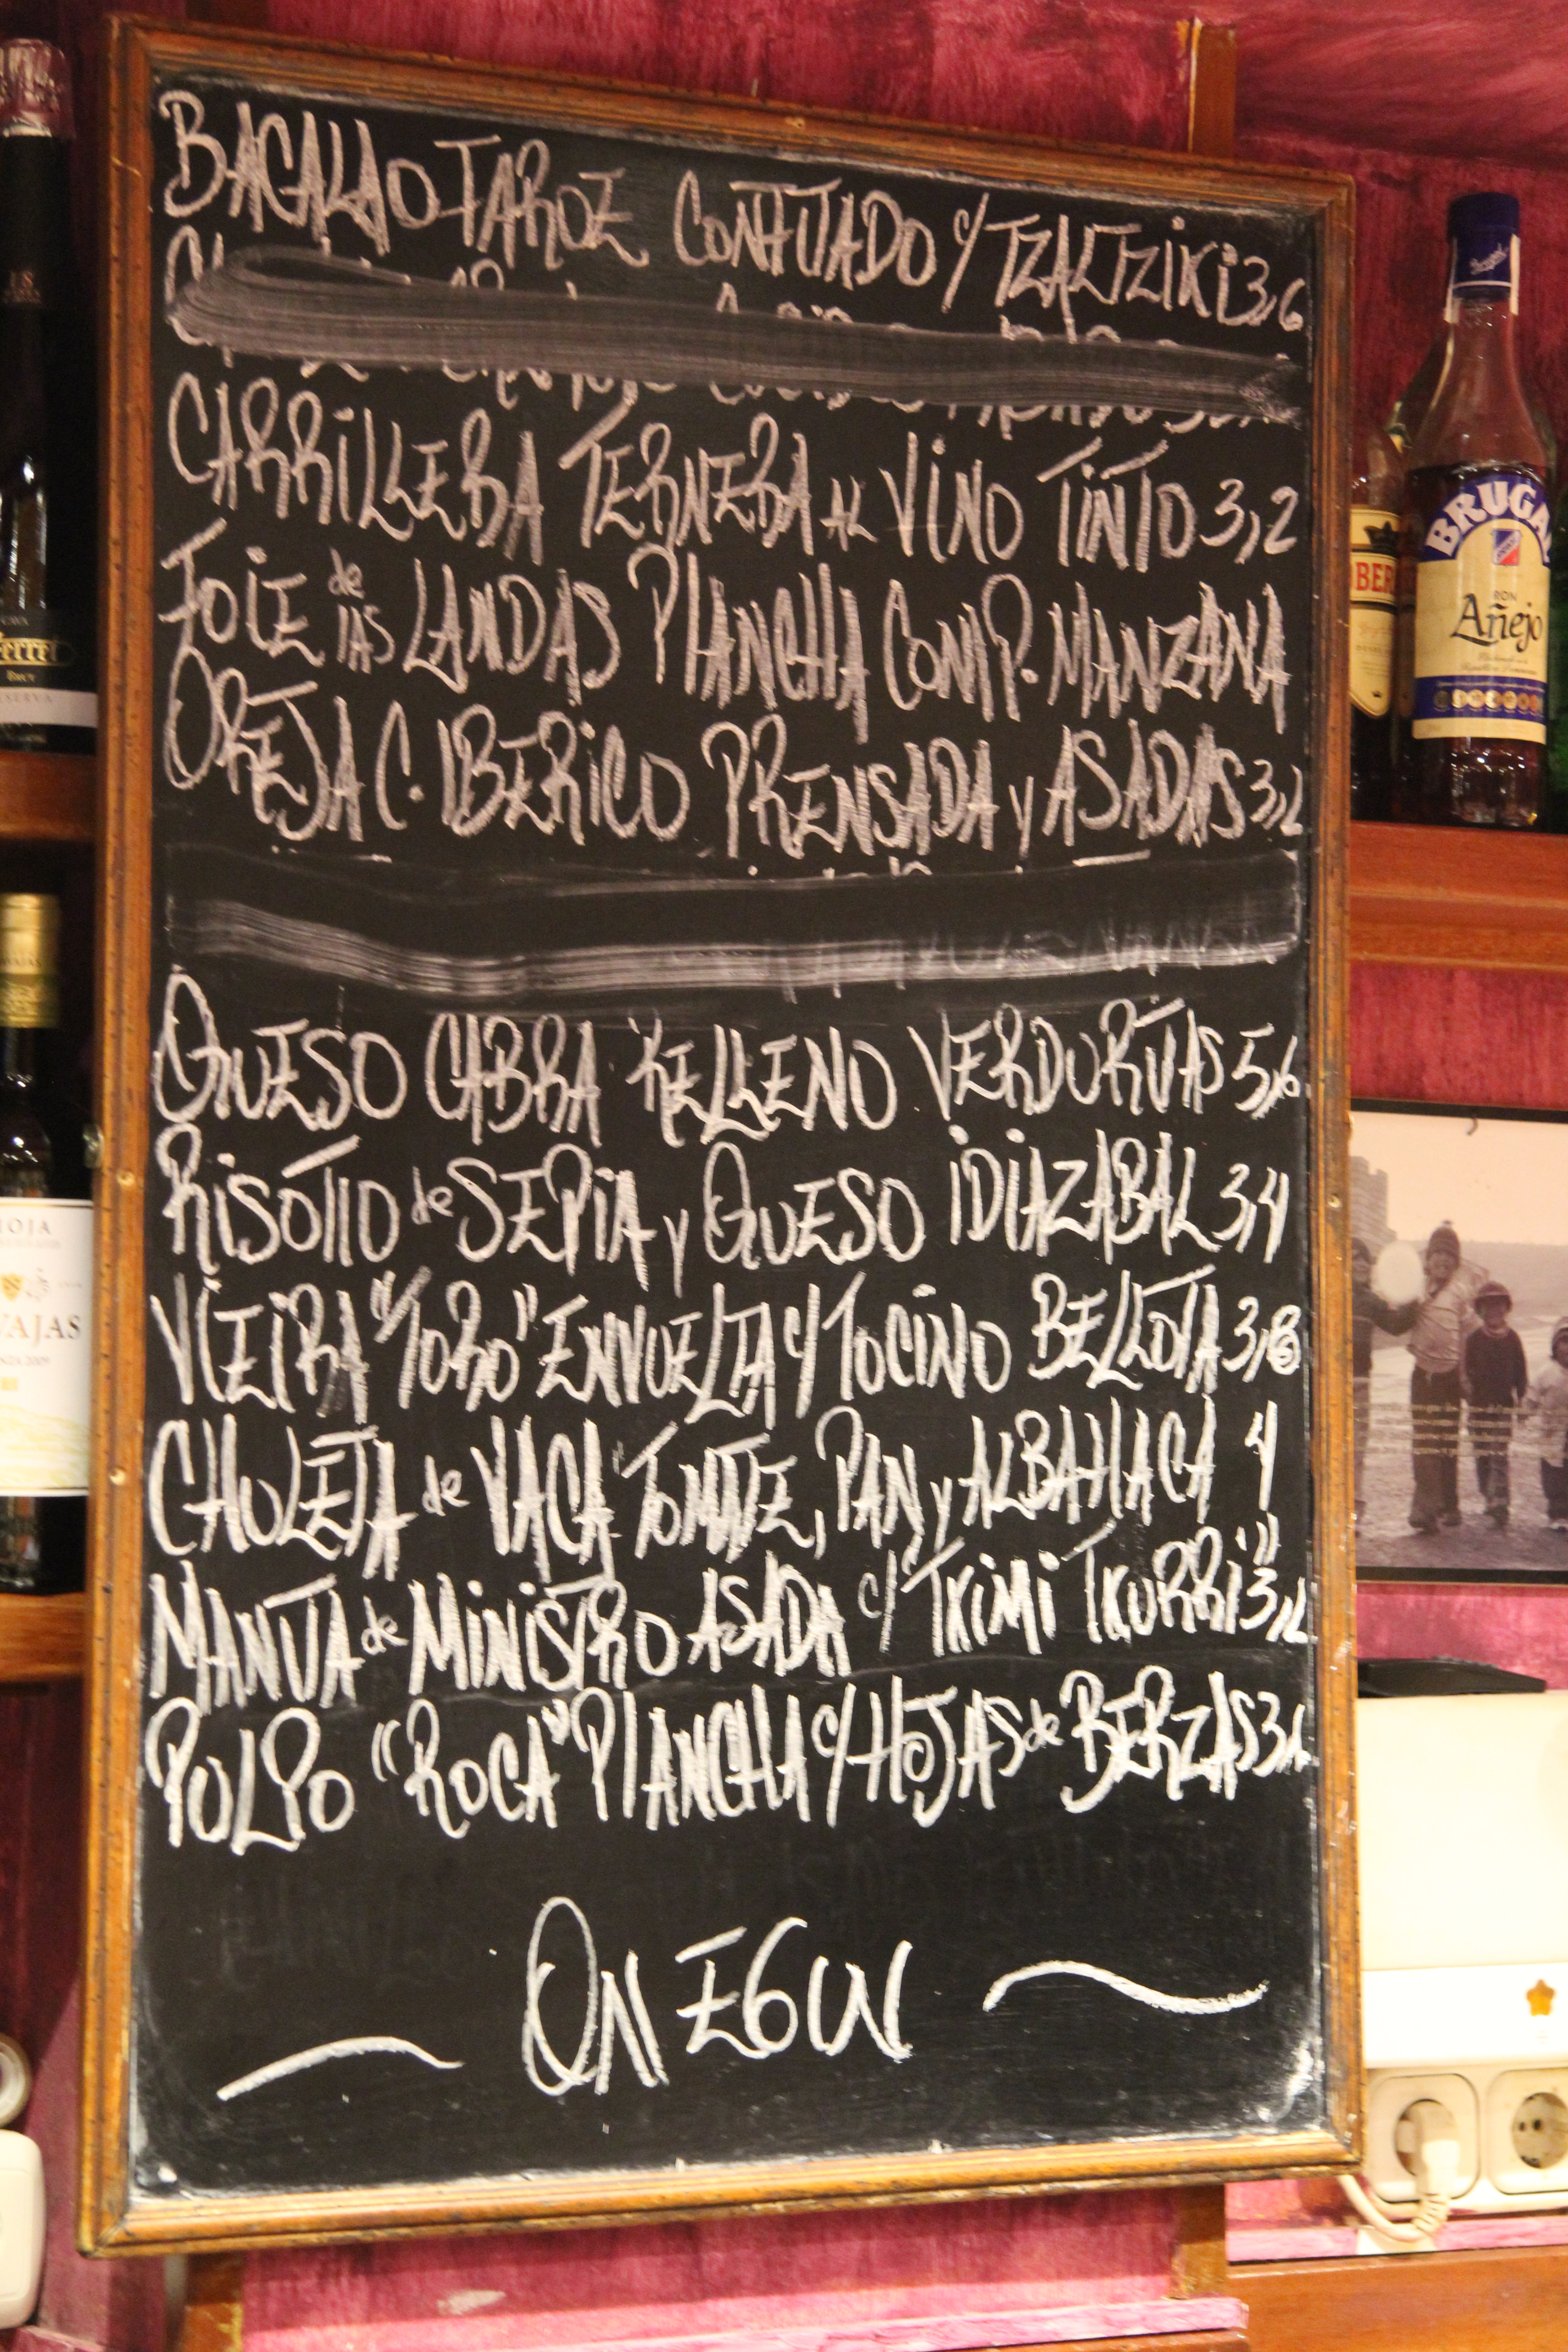 BACALAO FAROE CONFITADO c/ TZALTZIKI 3,6
CARRILLERA TERNERA AL VINO TINTO 3,2
FOIE de LAS LANDAS PLANCHA COMP. MANZANA
OREJA C. IBERICO PRENSADA y ASADAS 3,2
QUESO CABRA RELLENO VERDURITAS 5,6
RISOTTO de SEPIA y QUESO IDIAZABAL 3,4
VIEIRA "TORO" ENVUELTA c/ TOCINO BELLOTA 3,8
CHULETA de VACA TOMATE, PAN y ALBAHACA 4
MANTA de MINISTRO ASADA c/ "TXIMI TXURRI" 3,2
PULPO "ROCA" PLANCHA c/ HOJAS de BERZAS 3,6
ON EGUN
BRUGAL
RON
Añejo
BER
Ferret
BRUT
RESERVA
IOJA
VAJAS
2009